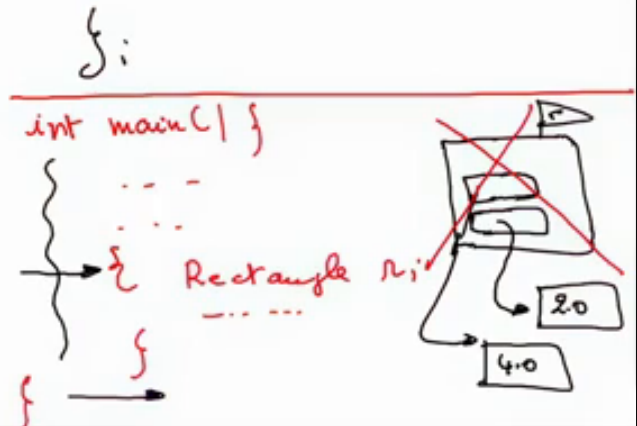 };
int main() {
... 
...
{ Rectangle r;
... ...
}
}
r
2.0
4.0